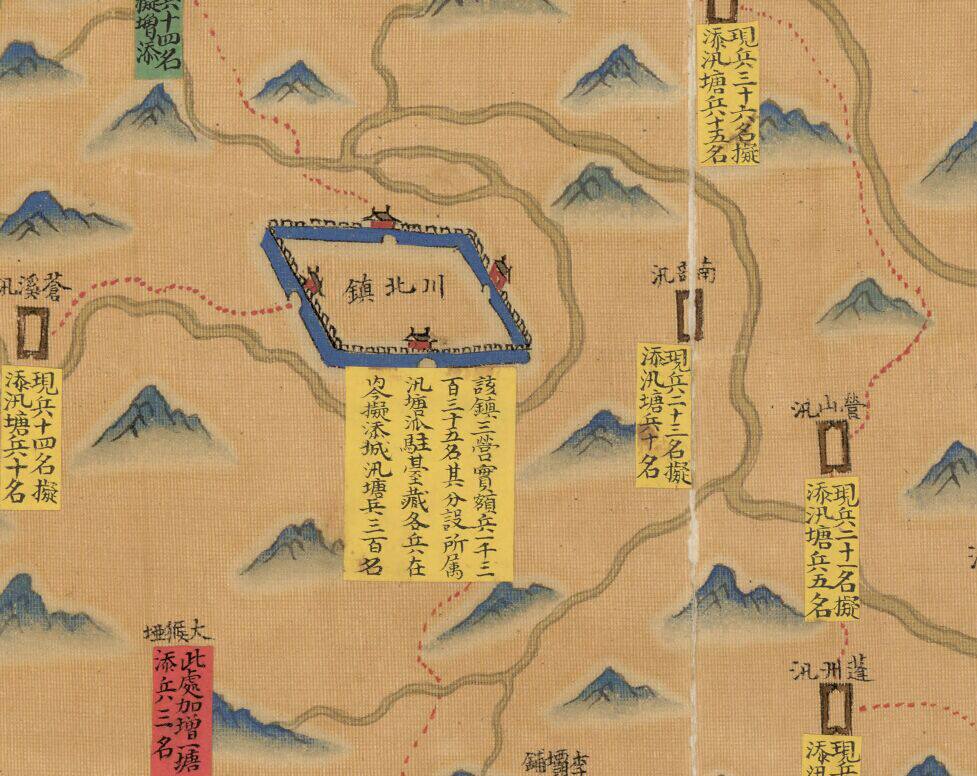 兵十四名
擬增添
現兵三十六名擬
添汛塘兵十五名
川北鎮
該鎮三營實額兵一千三
百三十五名其分設所属
汛塘派駐臺藏各兵在
内今擬添城汛塘兵三百名
南部汛
現兵二十三名擬
添汛塘兵十名
蒼溪汛
現兵十四名擬
添汛塘兵十名
營山汛
現兵二十一名擬
添汛塘兵五名
蓬州汛
現兵
添汛
大猴埡
此處加增一塘
添兵三名
李壩鋪